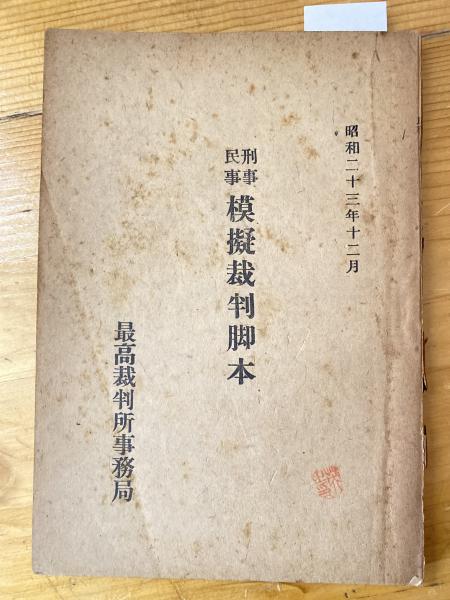 昭和二十三年十二月
刑事
民事
模擬裁判脚本
最高裁判所事務局